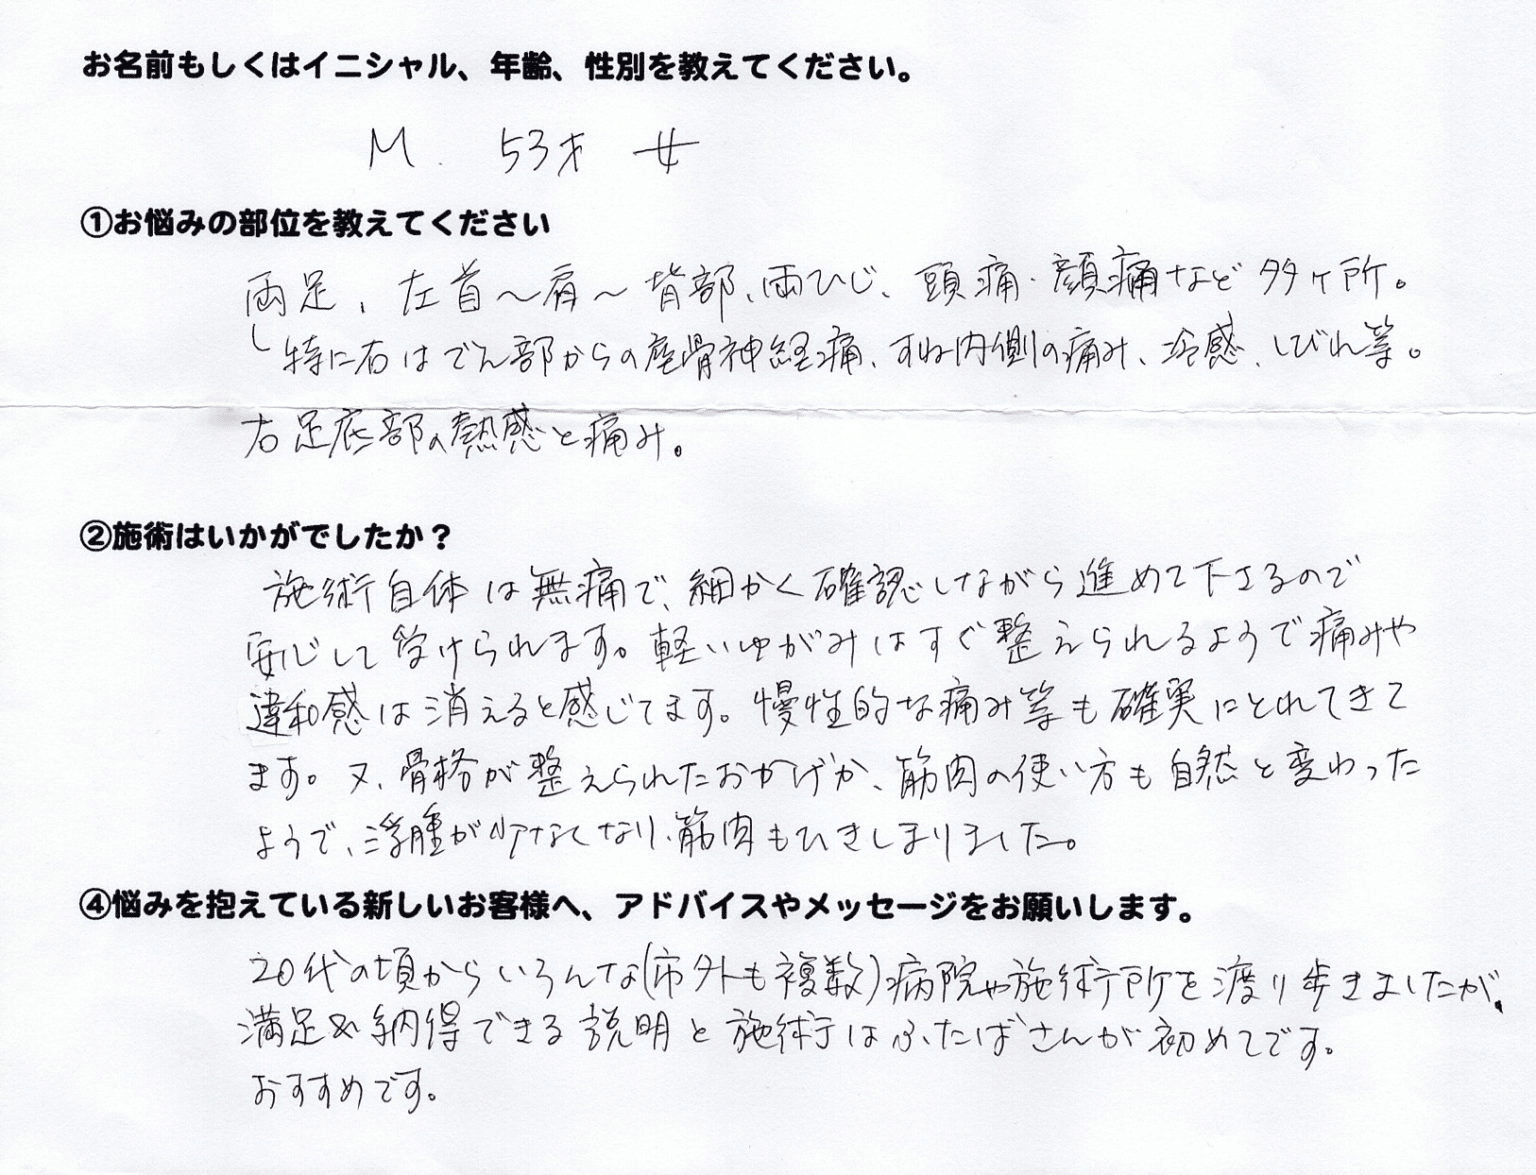 お名前もしくはイニシャル、年齢、性別を教えてください。
M. 53才 女
①お悩みの部位を教えてください
両足、左首〜肩〜背部、両ひじ、頭痛・顔痛など多ヶ所。
特に右はでん部からの座骨神経痛、すね内側の痛み、冷感、しびれ等。
右足底部の熱感と痛み。
②施術はいかがでしたか？
施術自体は無痛で、細かく確認しながら進めて下さるので
安心して受けられます。軽いゆがみはすぐ整えられるようで痛みや
違和感は消えると感じてます。慢性的な痛み等も確実にとれてきて
ます。又、骨格が整えられたおかげか、筋肉の使い方も自然と変わった
ようで、浮腫が少なくなり、筋肉もひきしまりました。
④悩みを抱えている新しいお客様へ、アドバイスやメッセージをお願いします。
20代の頃からいろんな(市外も複数)病院や施術所を渡り歩きましたが、
満足&納得できる説明と施術はふたばさんが初めてです。
おすすめです。